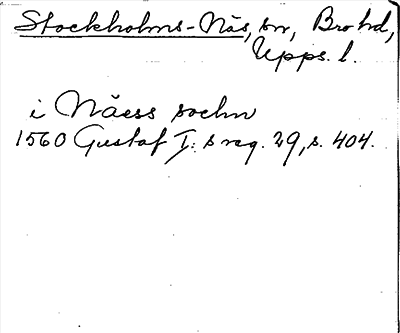 Stockholms-Näs, sn, Bro hd,
Upps. l.
i Näess sochn
1560 Gustaf I:s reg. 29, s. 404.